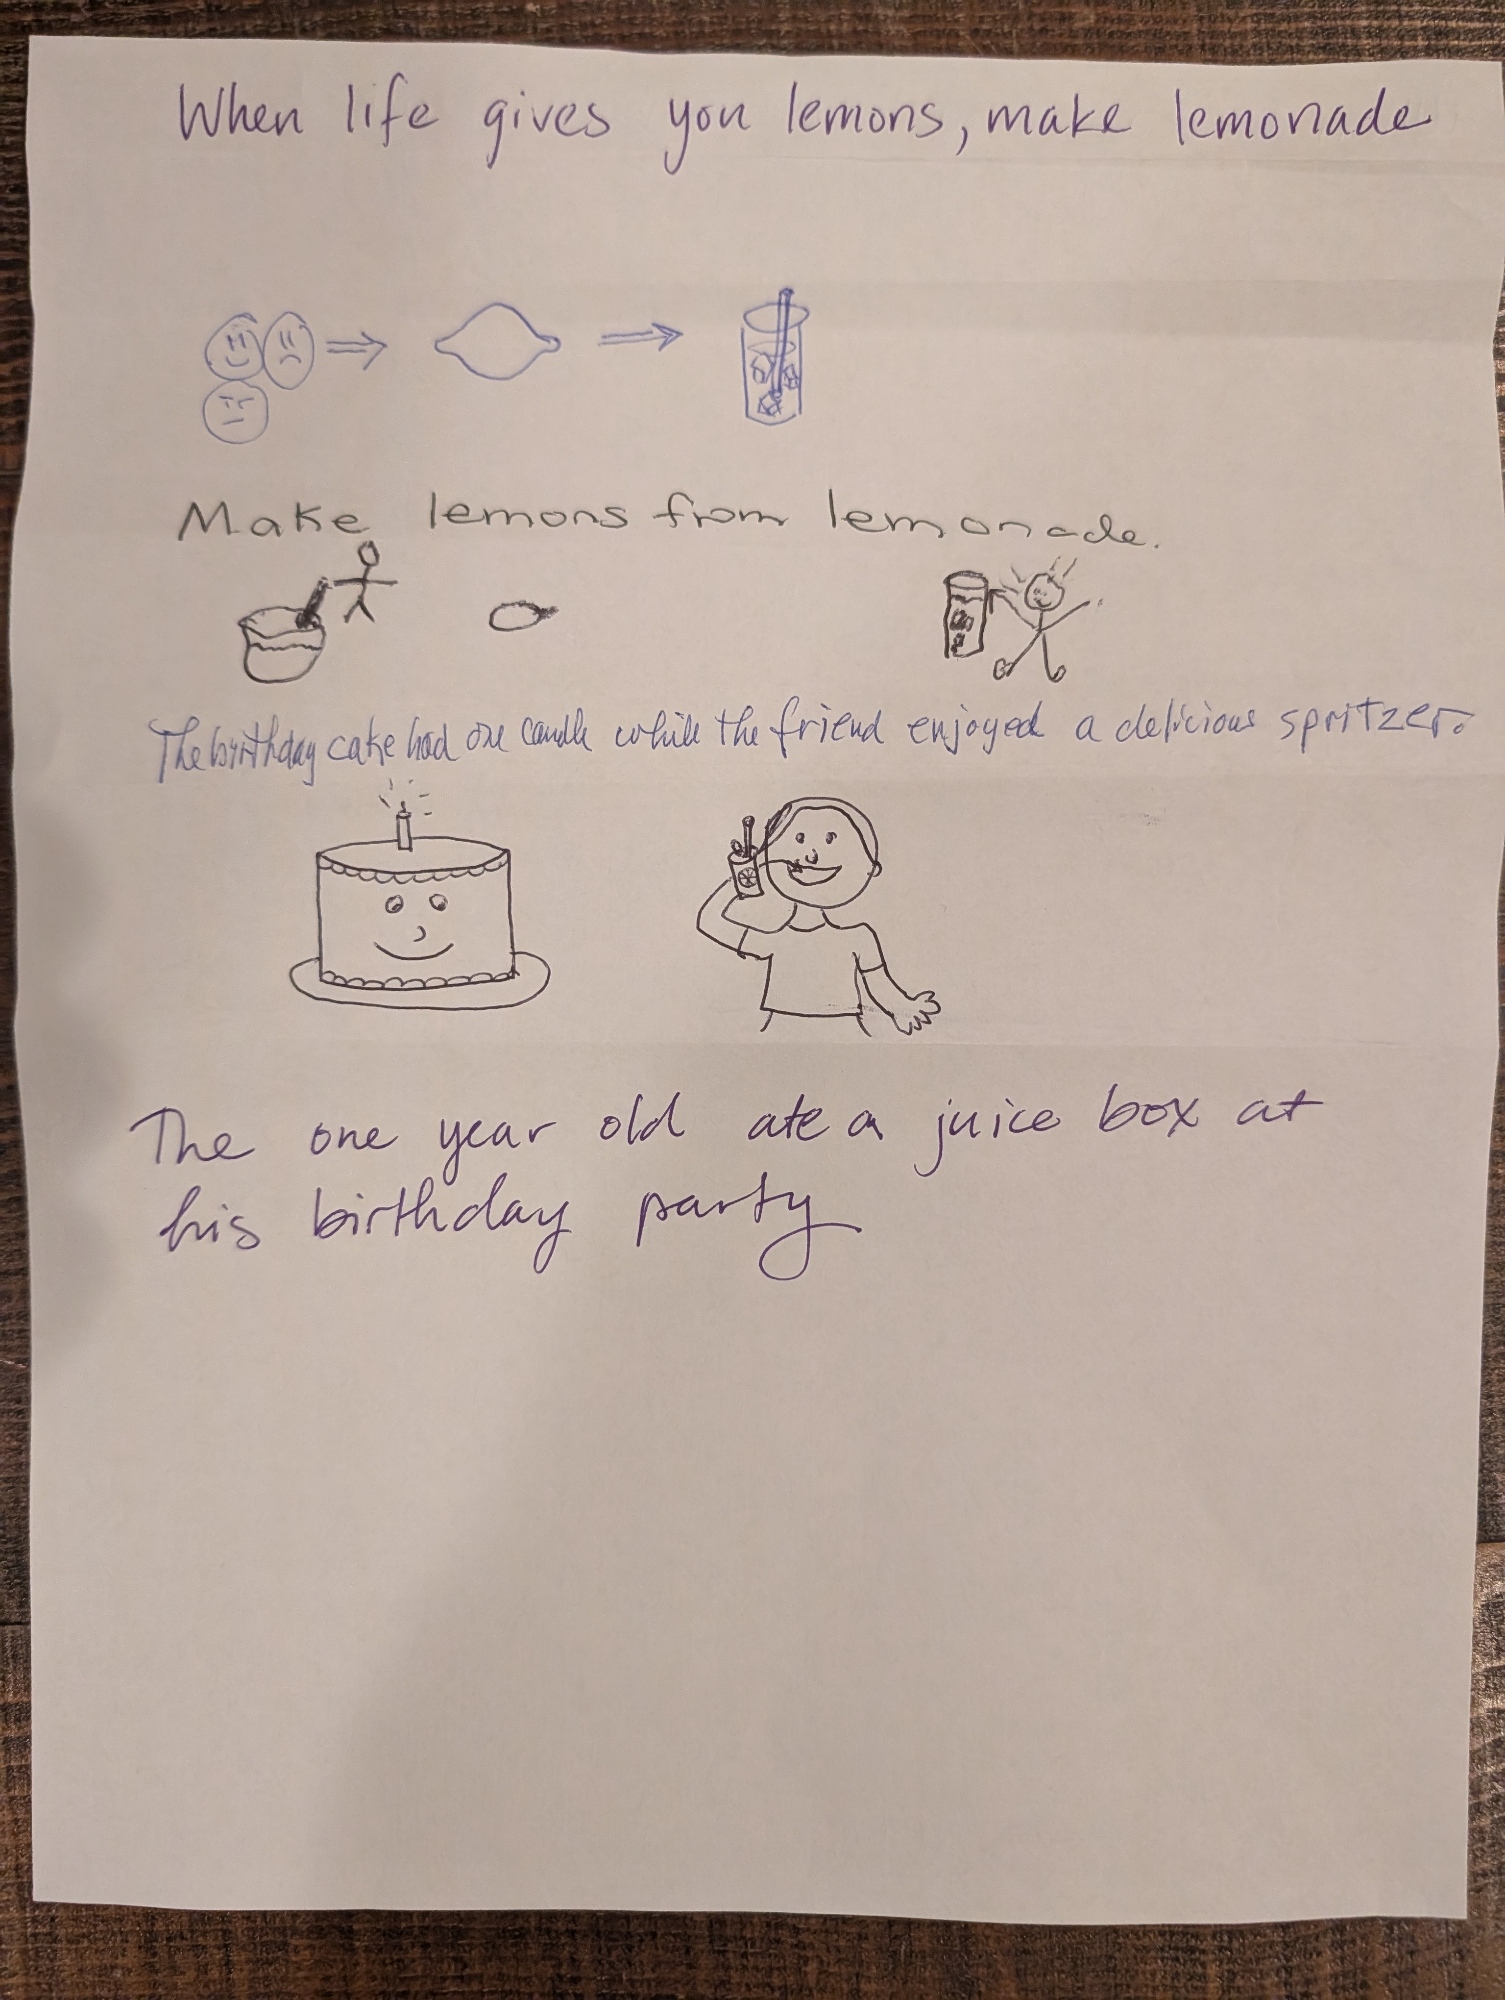 When life gives you lemons, make lemonade
Make lemons from lemonade.
The birthday cake had one candle while the friend enjoyed a delicious spritzer.
The one year old ate a juice box at
his birthday party